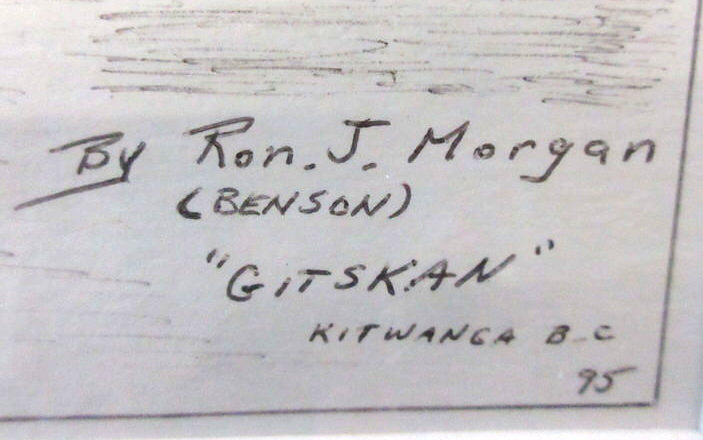 By Ron. J. Morgan
(BENSON)
"GITSKAN"
KITWANGA B.C
95